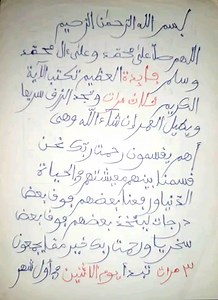 بسم الله الرحمٰن الرحيم
اللهم صل علىٰ محمد وعلىٰ ءال محمد
وسلم فايدة العظيم تكتب الآية
الكريم مرات ويجد الرزق سريعا
ويطيل العمر إن شاء الله وهي
أهم يقسمون رحمت ربك نحن
قسمنا بينهم معيشتهم في الحياة
الدنيا ورفعنا بعضهم فوق بعض
درجات ليتخذ بعضهم بعضا
سخريا ورحمت ربك خير مما يجمعون
٣ مرات تبدأ يوم الاثنين أول شهر